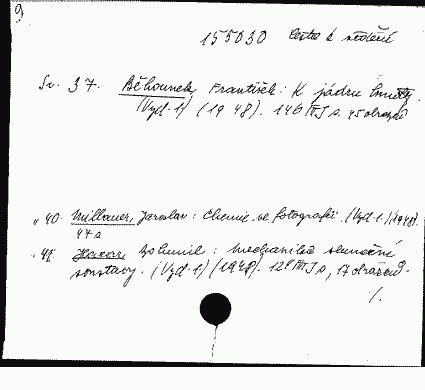 9
155030 Cesta k vědění
Sv. 37. Běhounek, František: K jádru hmoty.
(Vyd. 1) (1948). 146 s. 45 obrazů
" 40. Millauer, Jaroslav: Chemie ve fotografii. (Vyd. 1.) (1948).
47 s
" 41. Bohumil: Mechanika sluneční
soustavy. (Vyd. 1) (1948). s, 17 obrazců.